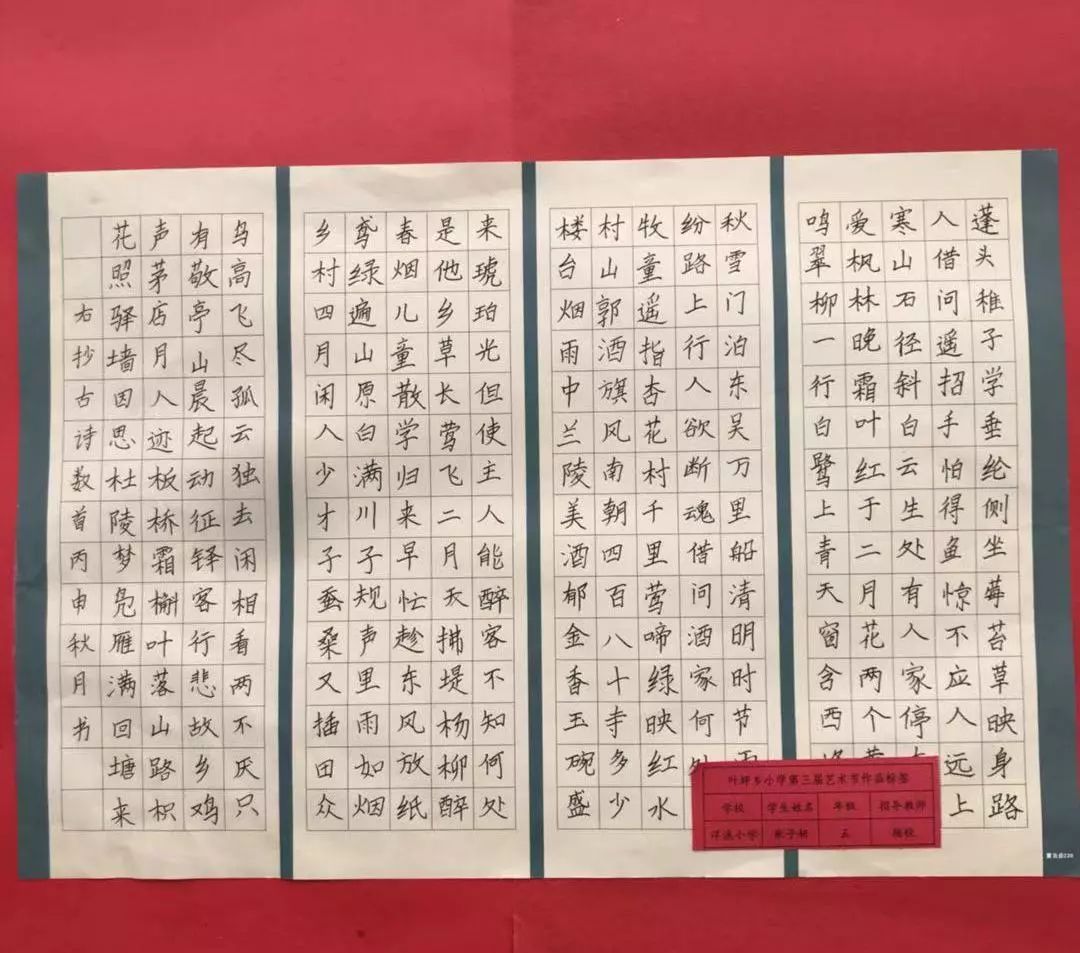 蓬头稚子学垂纶侧坐莓苔草映身路
人借问遥招手怕得鱼惊不应人远上
寒山石径斜白云生处有人家停
爱枫林晚霜叶红于二月花两个黄
鸣翠柳一行白鹭上青天窗含西岭
秋雪门泊东吴万里船清明时节雨
纷路上行人欲断魂借问酒家何处
牧童遥指杏花村千里莺啼绿映红水
村山郭酒旗风南朝四百八十寺多少
楼台烟雨中兰陵美酒郁金香玉碗盛
来琥珀光但使主人能醉客不知何处
是他乡草长莺飞二月天拂堤杨柳醉
春烟儿童散学归来早忙趁东风放纸
鸢绿遍山原白满川子规声里雨如烟
乡村四月闲人少才子蚕桑又插田众
鸟高飞尽孤云独去闲相看两不厌只
有敬亭山晨起动征铎客行悲故乡鸡
声茅店月人迹板桥霜槲叶落山路枳
花照驿墙因思杜陵梦凫雁满回塘来
右抄古诗数首丙申秋月书
叶坪乡小学第三届艺术节作品标签
学校 学生姓名 年级 指导教师
小学 五